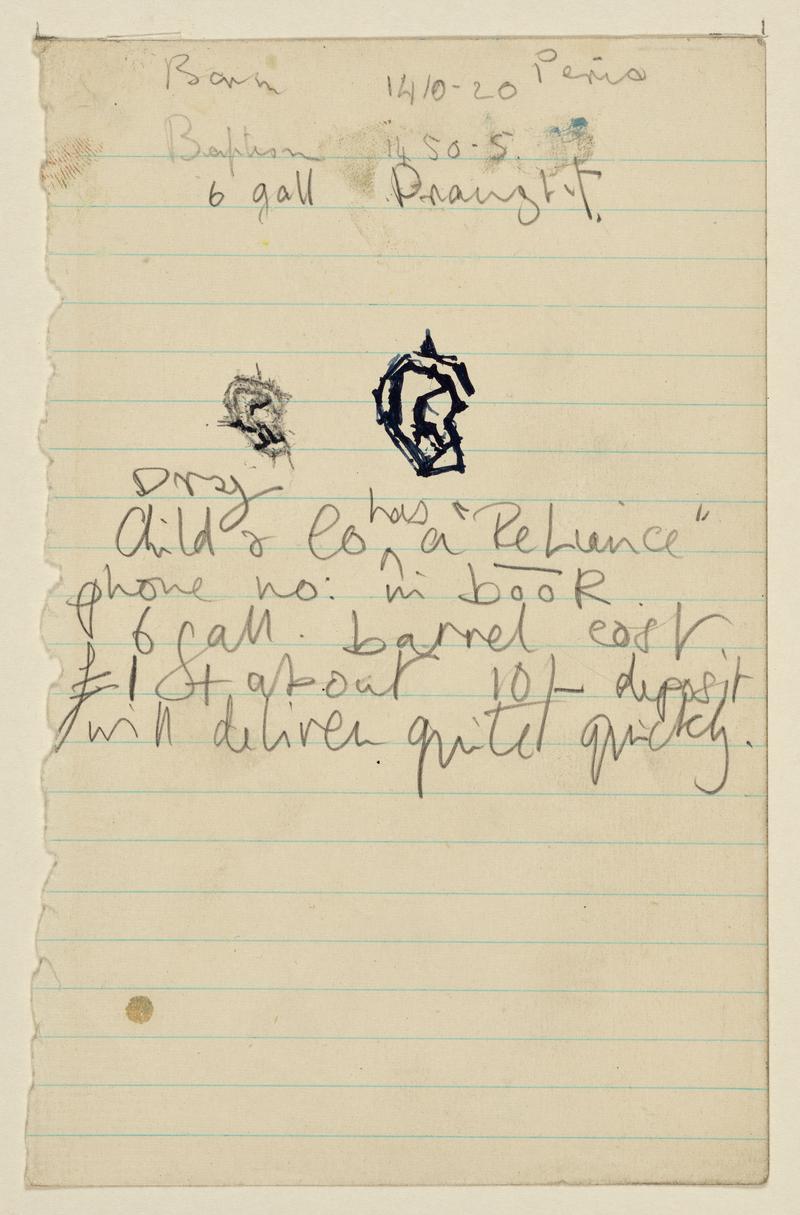 Born 1410-20 Perio
Baptism 1450-5.
6 gall Draught.
Dray
Child & Co has a "Reliance"
phone no: in book
6 gall. barrel cost.
£1 & about 10/- deposit
will deliver quite quickly.